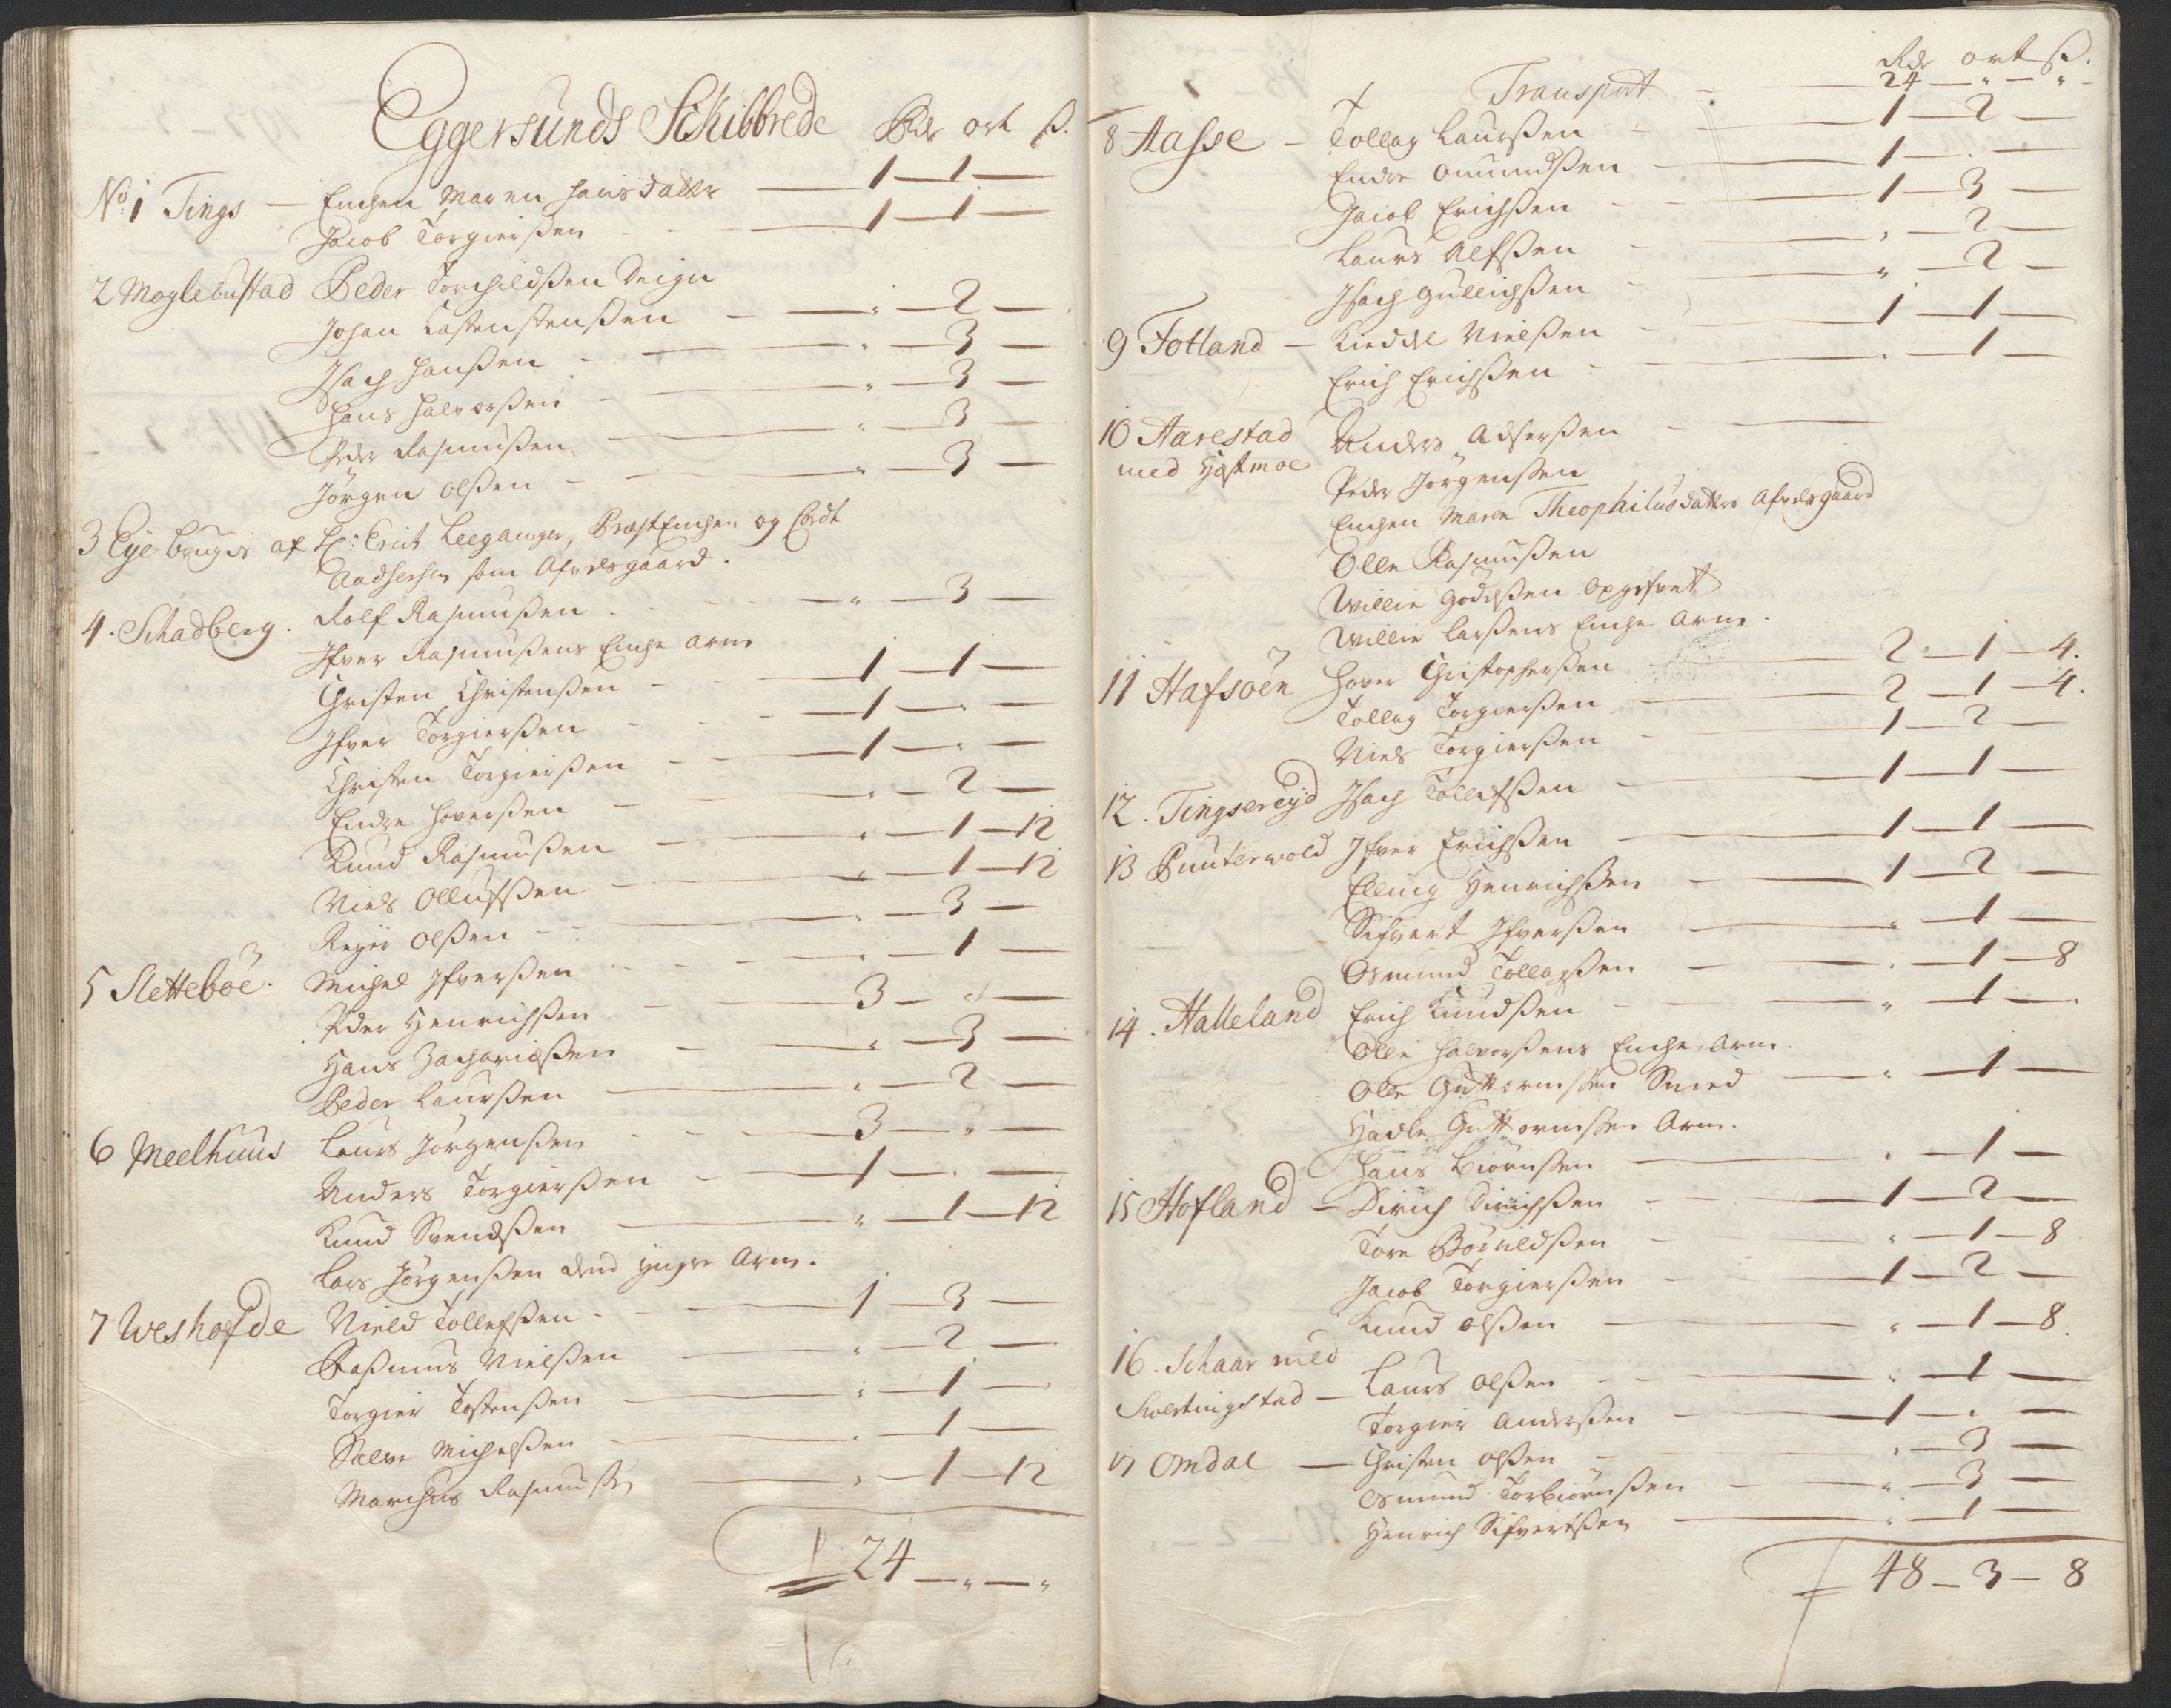 Eggersunds Schibbrede Rdr ort ß.
No 1 Tings — Enchen Maren Hansdatter — 1 — 1 —
Jacob Torgierßen — 1 — 1 —
2 Moglebustad Peder Torchildßen Deign
Johan Castenstenßen — " — 2 —
Isach Hanßen — " — 3 —
Hans Halvorßen — " — 3 —
Peder Rasmußen — " — 3 —
Jörgen Olßen — " — 3 —
3 Eye bruges af Hr: Erich Leeganger, Præst Enchen og Cordt
Aadsersen som Afvelsgaard.
4. Schadberg. Rolf Rasmußen — " — 3 —
Ifver Rasmußens Enche arm
Christen Christenßen — 1 — 1 —
Ifver Torgierßen — 1 — " —
Christen Torgierßen — 1 — " —
Endre Hoverßen — " — 2 —
Knud Rasmußen — " — 1 — 12
Niels Ollufßen — " — 1 — 12
Reyer Olßen — " — 3 —
5 Sletteboe. Michel Ifverßen — " — 1 —
Peder Henrichßen — 3 — " —
Hans Zachariæßen — " — 3 —
Peder Laurßen — " — 2 —
6 Meelhuus Laurs Jörgenßen — 3 — " —
Anders Torgierßen — 1 — " —
Knud Svendßen — " — 1 — 12
Lars Jörgenßen dend yngre Arm.
7 Weshofde Nield Tollefßen — 1 — 3 —
Raßmus Nielßen — " — 2 —
Torgier Tostenßen — " — 1 —
Salve Michelßen — " — 1 —
Marchus Rasmußen — " — 1 — 12
24 — " — "
Rdr ort ß.
Transport — 24 — " — "
8 Aasse — Tollag Laurßen — 1 — 2 —
Endre Omundßen — 1 — " —
Jacob Erichßen — 1 — 3 —
Laurs Alfßen — " — 2 —
Isach Gullichßen — " — 2 —
9 Fotland — Kieddel Nielßen — 1 — 1 —
Erich Erichßen — " — 1 —
10 Aarestad Anders Adserßen —
med Hæstmoe Peder Jörgenßen
Enchen Maren Theophilusdatters Afvelsgaard
Olle Rasmußen
Willie Godßen Opgifvet
Willie Larßens Enche Arm.
11 Hafsöen Hover Christopherßen — 2 — 1 — 4.
Tollag Torgierßen — 2 — 1 — 4.
Niels Torgierßen — 1 — 2 —
12. Tingsereyd Isach Tollefßen — 1 — 1 —
13 Puuterwold Ifver Erichßen — 1 — 1 —
Elling Henrichßen — 1 — 2 —
Sifvert Ifverßen — " — 1 —
Osmund Tollagßen — " — 1 — 8
14. Halleland Erich Knudßen — " — 1 —
Olle Halvorßens Enche Arm.
Olle Guttormßen Smed — " — 1 —
Hadle Guttormßen Arm.
Hans Biörnßen — " — 1 —
15 Hofland — Dirich Dirichßen — 1 — 2 —
Tore Börildßen — " — 1 — 8
Jacob Torgierßen — 1 — 2 —
Knud Olßen — " — 1 — 8.
16. Schaar med
Svertingstad — Laurs Olßen — " — 1 —
Torgier Anderßen — 1 — " —
17 Omdal — Christen Olßen — " — 3 —
Osmund Torbiörnßen — " — 3 —
Henrich Sifvertßen — " — 1 —
48 — 3 — 8